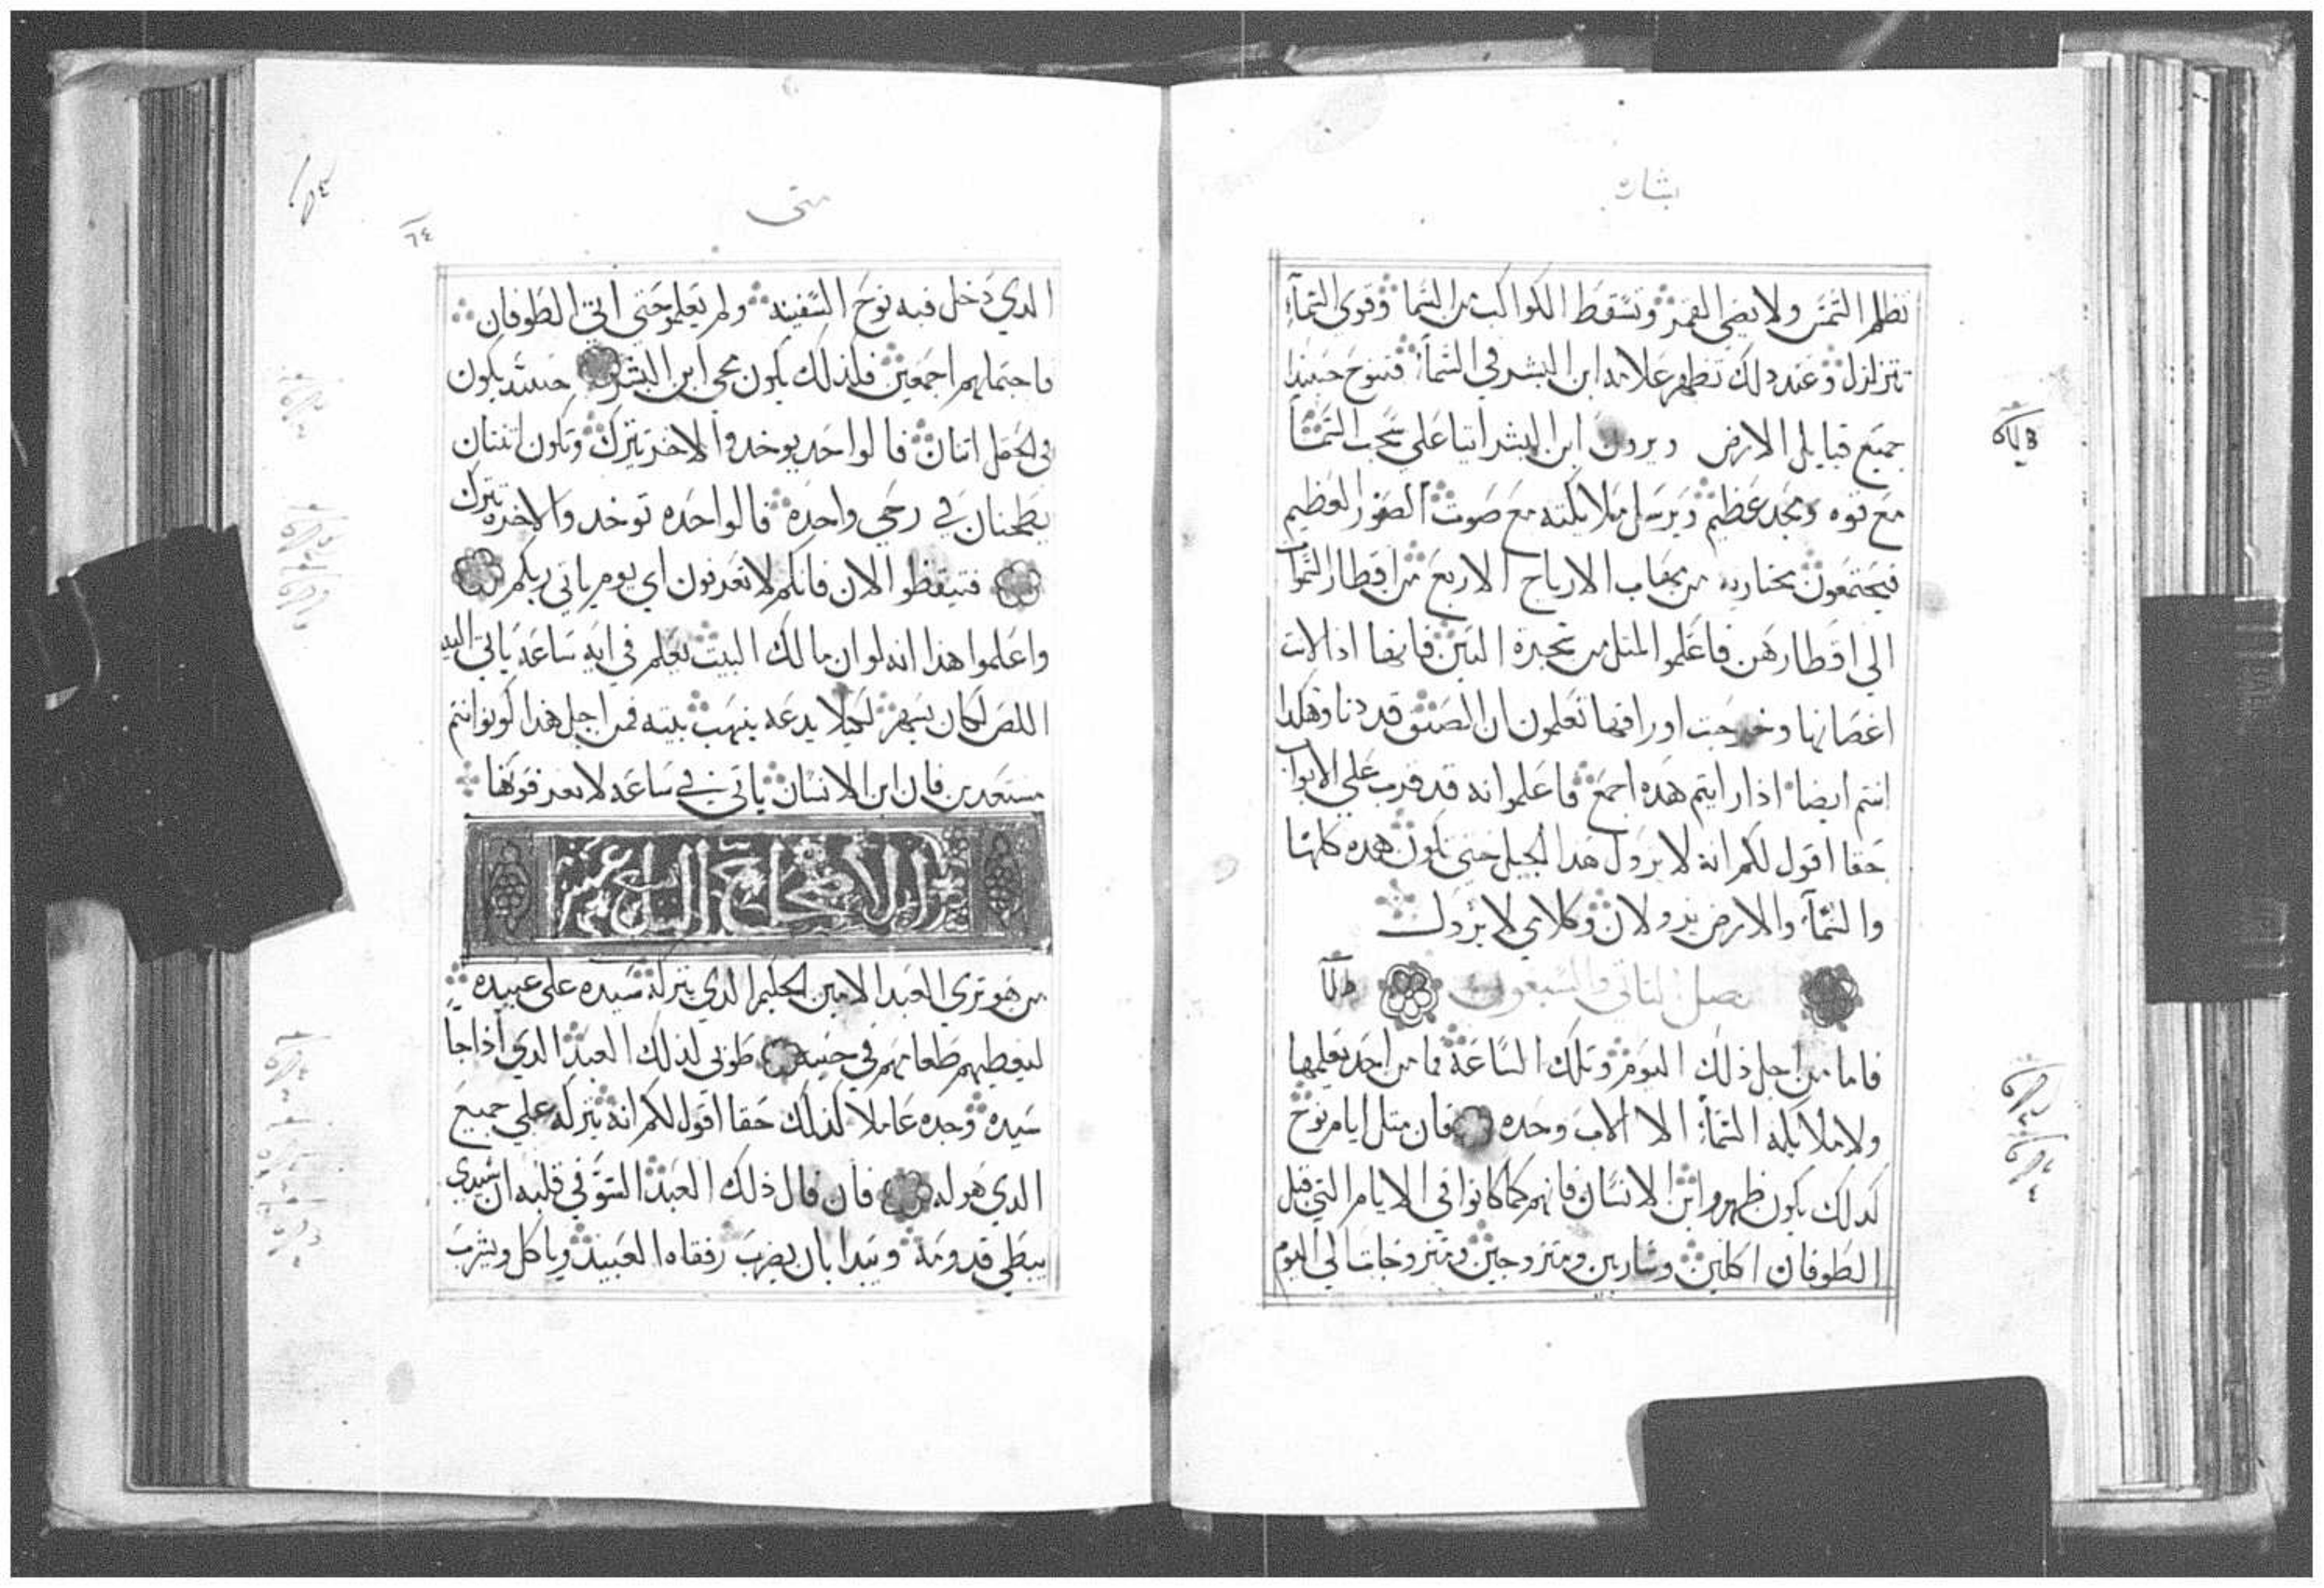 بشاره
تظلم الشمس ولا يضي القمر وتسقط الكواكب من السما وقوي السمآء
تتزلزل وعند دلك تظهر علامه ابن البشر في السمآء فتنوح حينيدا
جميع قبايل الارض ويرون ابن البشر اتيا على سحب السمآ
مع قوه ومجد عظيم ويرسل ملايكته مع صوت الصور العظيم
فيجتمعون مختاريه من مهاب الارياح الاربع من اقطار السموات
الي اقطارهن فاعلموا المتل من شجرة التين فانها ادا لانت
اغصانها وخرجت اوراقها تعلمون ان الصيف قد دنا وهكدا
انتم ايضا ادا رايتم هده اجمع فاعلموا انه قد قرب علي الابواب
حقا اقول لكم انه لا يزول هدا الجيل حتى تكون هده كلها
والسمآء والارض يزولان وكلامي لا يزول
فصل التاني والسبعون
فاما من اجل ذلك اليوم وتلك الساعة فما من احد يعلمها
ولا ملايكه السمآء الا الاب وحده فان متل ايام نوح
كدلك يكون ظهور ابن الانسان فانهم كما كانوا في الايام التي قبل
الطوفان اكلين وشاربين ومتزوجين ومتزوجات الي اليوم
متى
٦٤
الدي دخل فيه نوح السفينه ولم يعلموا حتى اتي الطوفان
فاحتملهم اجمعين فلذلك يكون مجي ابن البشر حينيد يكون
في الحقل اتنان فالواحد يوخد والاخر يترك وتكون اتنتان
يطحنان في رحي واحده فالواحده توخد والاخره تترك
فتيقظوا الان فانكم لا تعرفون اي يوم ياتي ربكم
واعلموا هذا انه لو ان مالك البيت يعلم في ايه ساعه ياتي اليه
اللص لكان يسهر لكيلا يدعه ينهب بيته فمن اجل هذا كونوا انتم
مستعدين فان ابن الانسان ياتي في ساعه لا تعرفونها
من هو تري العبد الامين الحكيم الدي يتركه سيده على عبيده
ليعطيهم طعامهم في حينه طوبى لذلك العبد الدي اذا جا
سيده وجده عاملا كذلك حقا اقول لكم انه يتركه علي جميع
الدي هو له فان قال ذلك العبد السو في قلبه ان سيدي
يبطي قدومه ويبدا بان يضرب رفقاه العبيد وياكل ويشرب